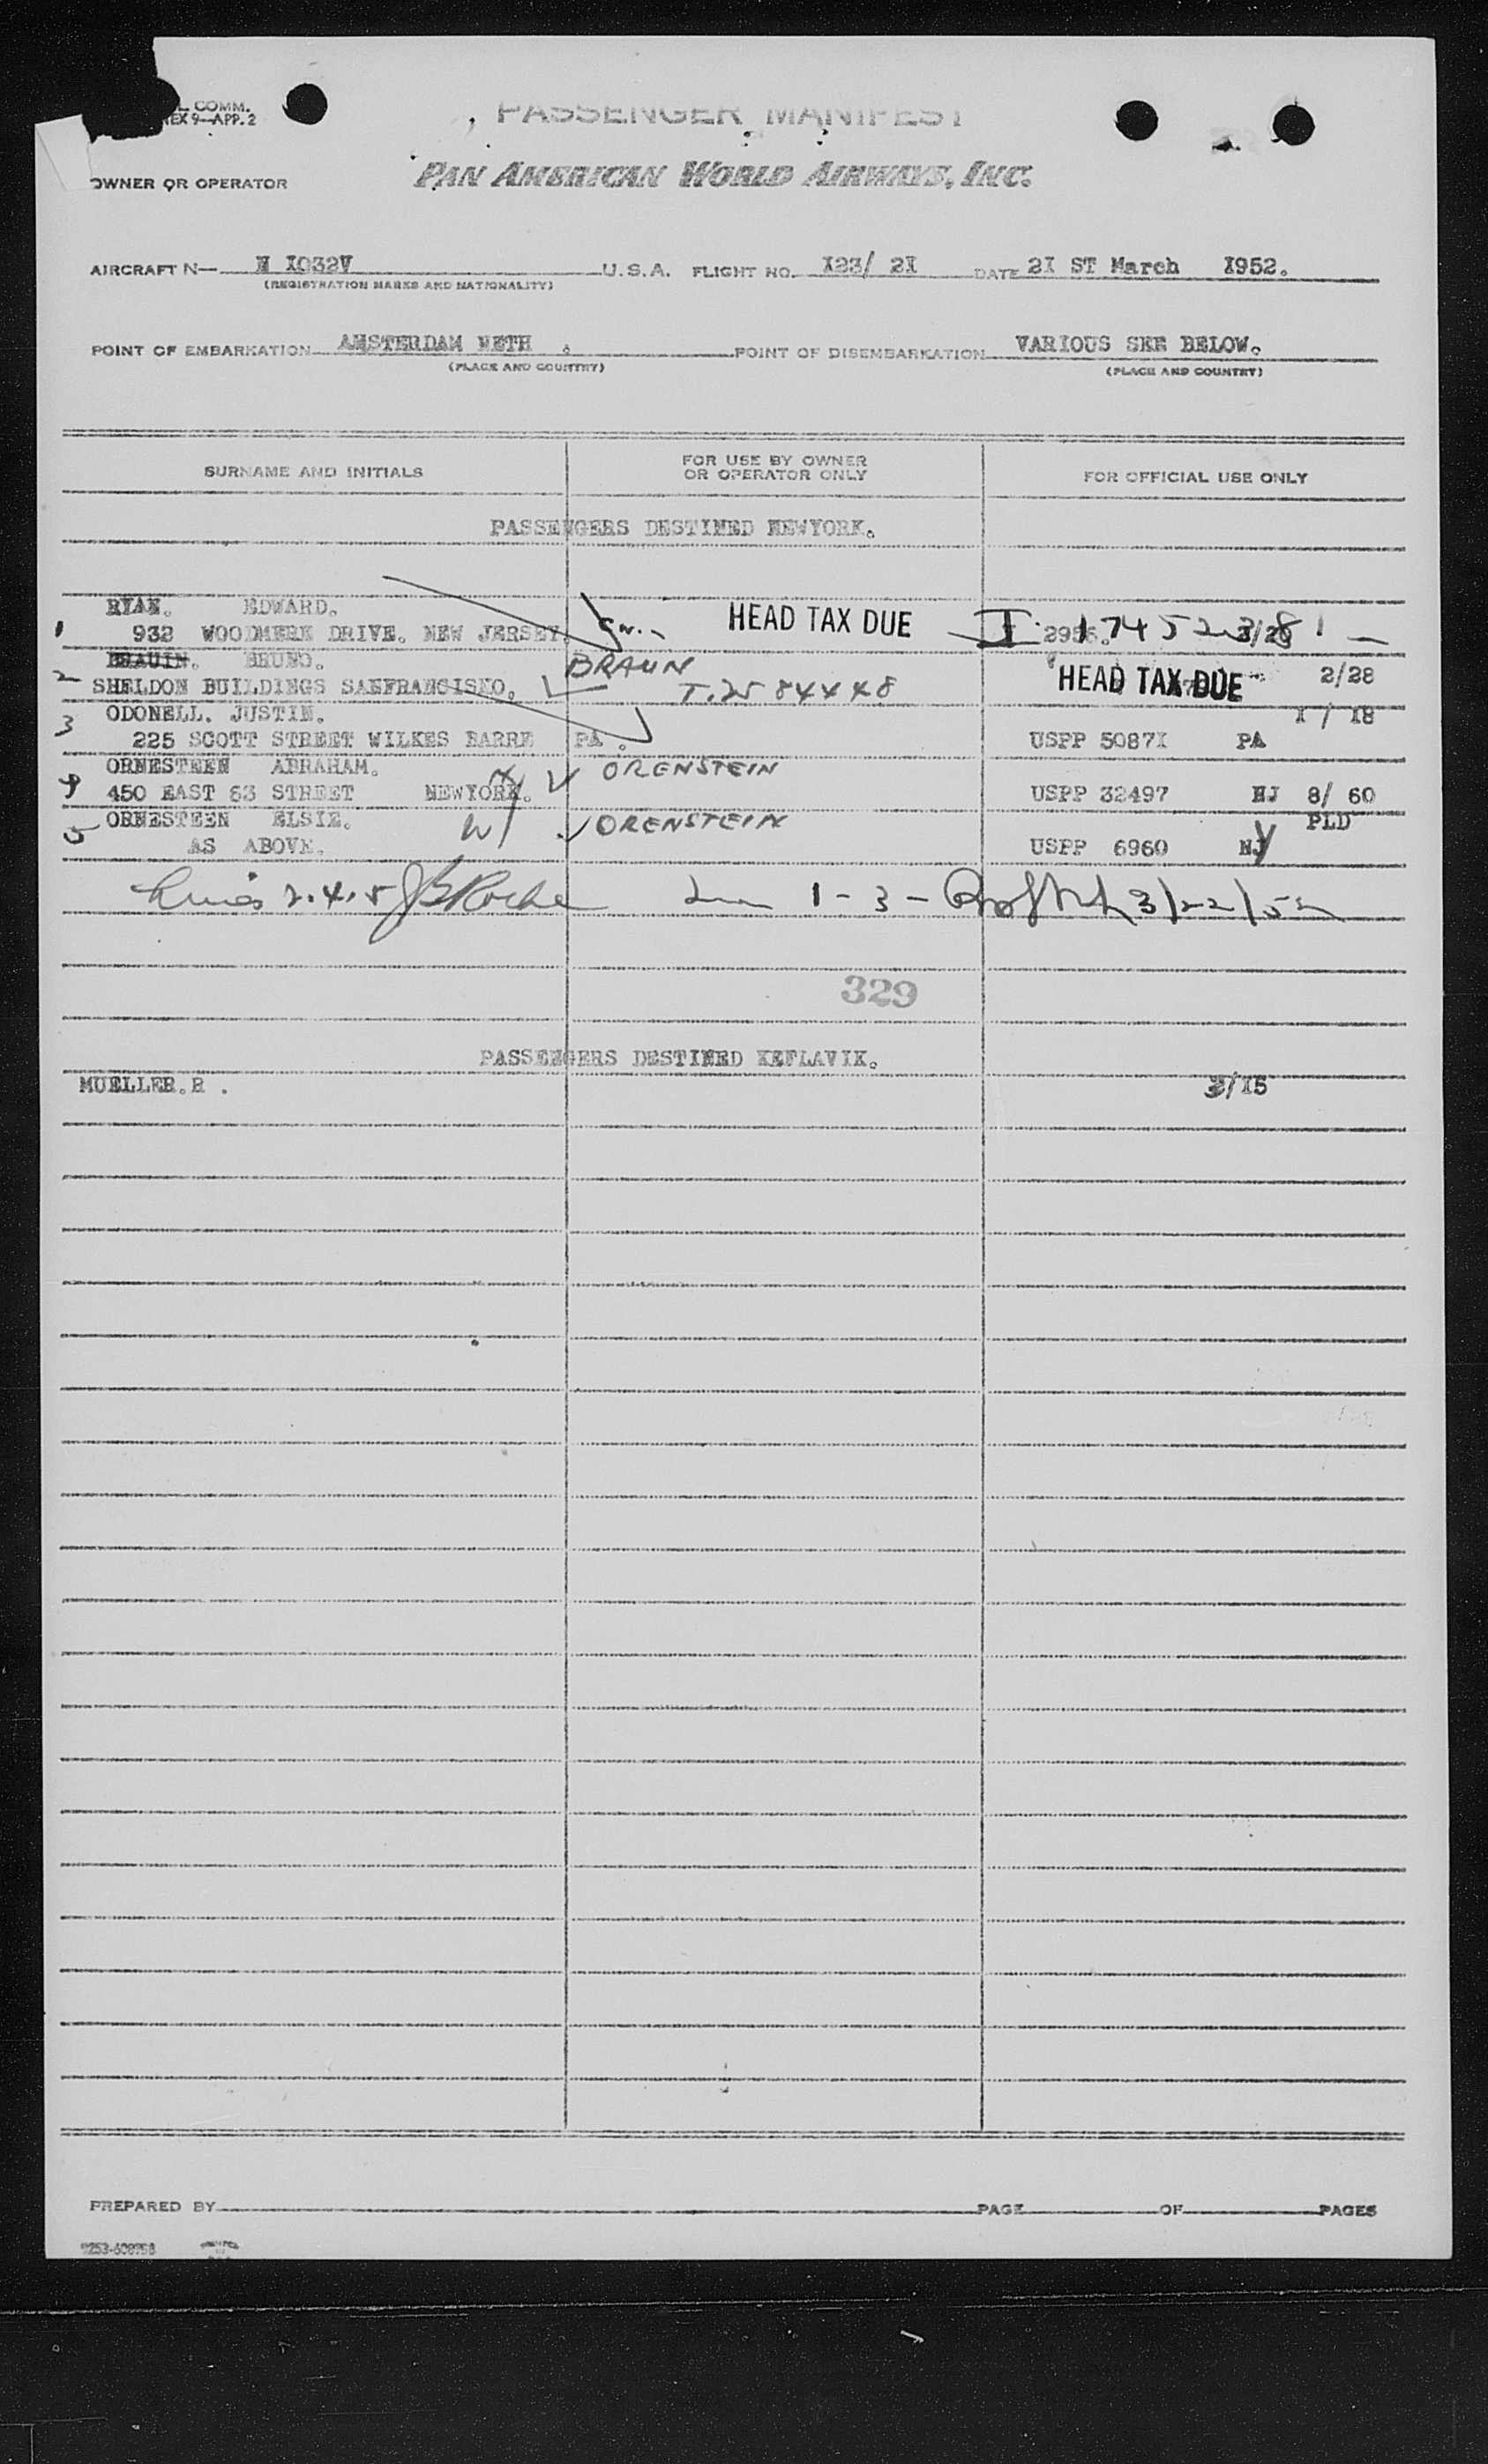 L COMM.
EX 9—APP. 2
PASSENGER MANIFEST
OWNER OR OPERATOR PAN AMERICAN WORLD AIRWAYS, INC.
AIRCRAFT N— N I032V U.S.A. FLIGHT NO. I23/ 2I DATE 2I ST March I952.
(REGISTRATION MARKS AND NATIONALITY)
POINT OF EMBARKATION AMSTERDAM NETH . POINT OF DISEMBARKATION VARIOUS SEE BELOW.
(PLACE AND COUNTRY) (PLACE AND COUNTRY)
SURNAME AND INITIALS FOR USE BY OWNER OR OPERATOR ONLY FOR OFFICIAL USE ONLY
PASSENGERS DESTINED NEWYORK.
RYAN. EDWARD. HEAD TAX DUE
1 932 WOODMERE DRIVE. NEW JERSEY. I
BRAUIN. BRUNO. BRAUN
2 SHELDON BUILDINGS SANFRANCISKO. T.2584448 HEAD TAX DUE 2/28
3 ODONELL. JUSTIN. I / I8
225 SCOTT STREET WILKES BARRE PA . USPP 5087I PA
ORNESTEEN ABRAHAM. ORENSTEIN
4 450 EAST 63 STREET NEWYORK. USPP 32497 NJ 8/ 60
5 ORNESTEEN ELSIE. W/ ORENSTEIN PLD
AS ABOVE. USPP 6960 NY
2.4.5 1 - 3 - 3/22/52
329
PASSENGERS DESTINED KEFLAVIK.
MUELLER.R . 3/I5
PREPARED BY PAGE OF PAGES